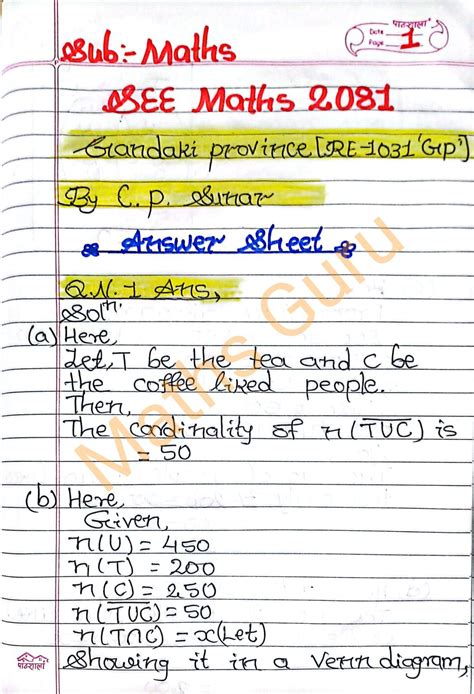 पाठशाला
Date
Page 1
Sub:- Maths
SEE Maths 2081
Gandaki province [RE-1031 'Gp']
By C. P. Sunar
Answer Sheet
Q.N. 1 Ans,
Solⁿ.
(a) Here,
Let, T be the tea and C be
the coffee liked people.
Then,
The cardinality of n(T̅U̅C̅) is
= 50
(b) Here,
Given,
n(U) = 450
n(T) = 200
n(C) = 250
n(T̅U̅C̅) = 50
n(T∩C) = x(Let)
Showing it in a venn diagram,
पाठशाला
Maths Guru